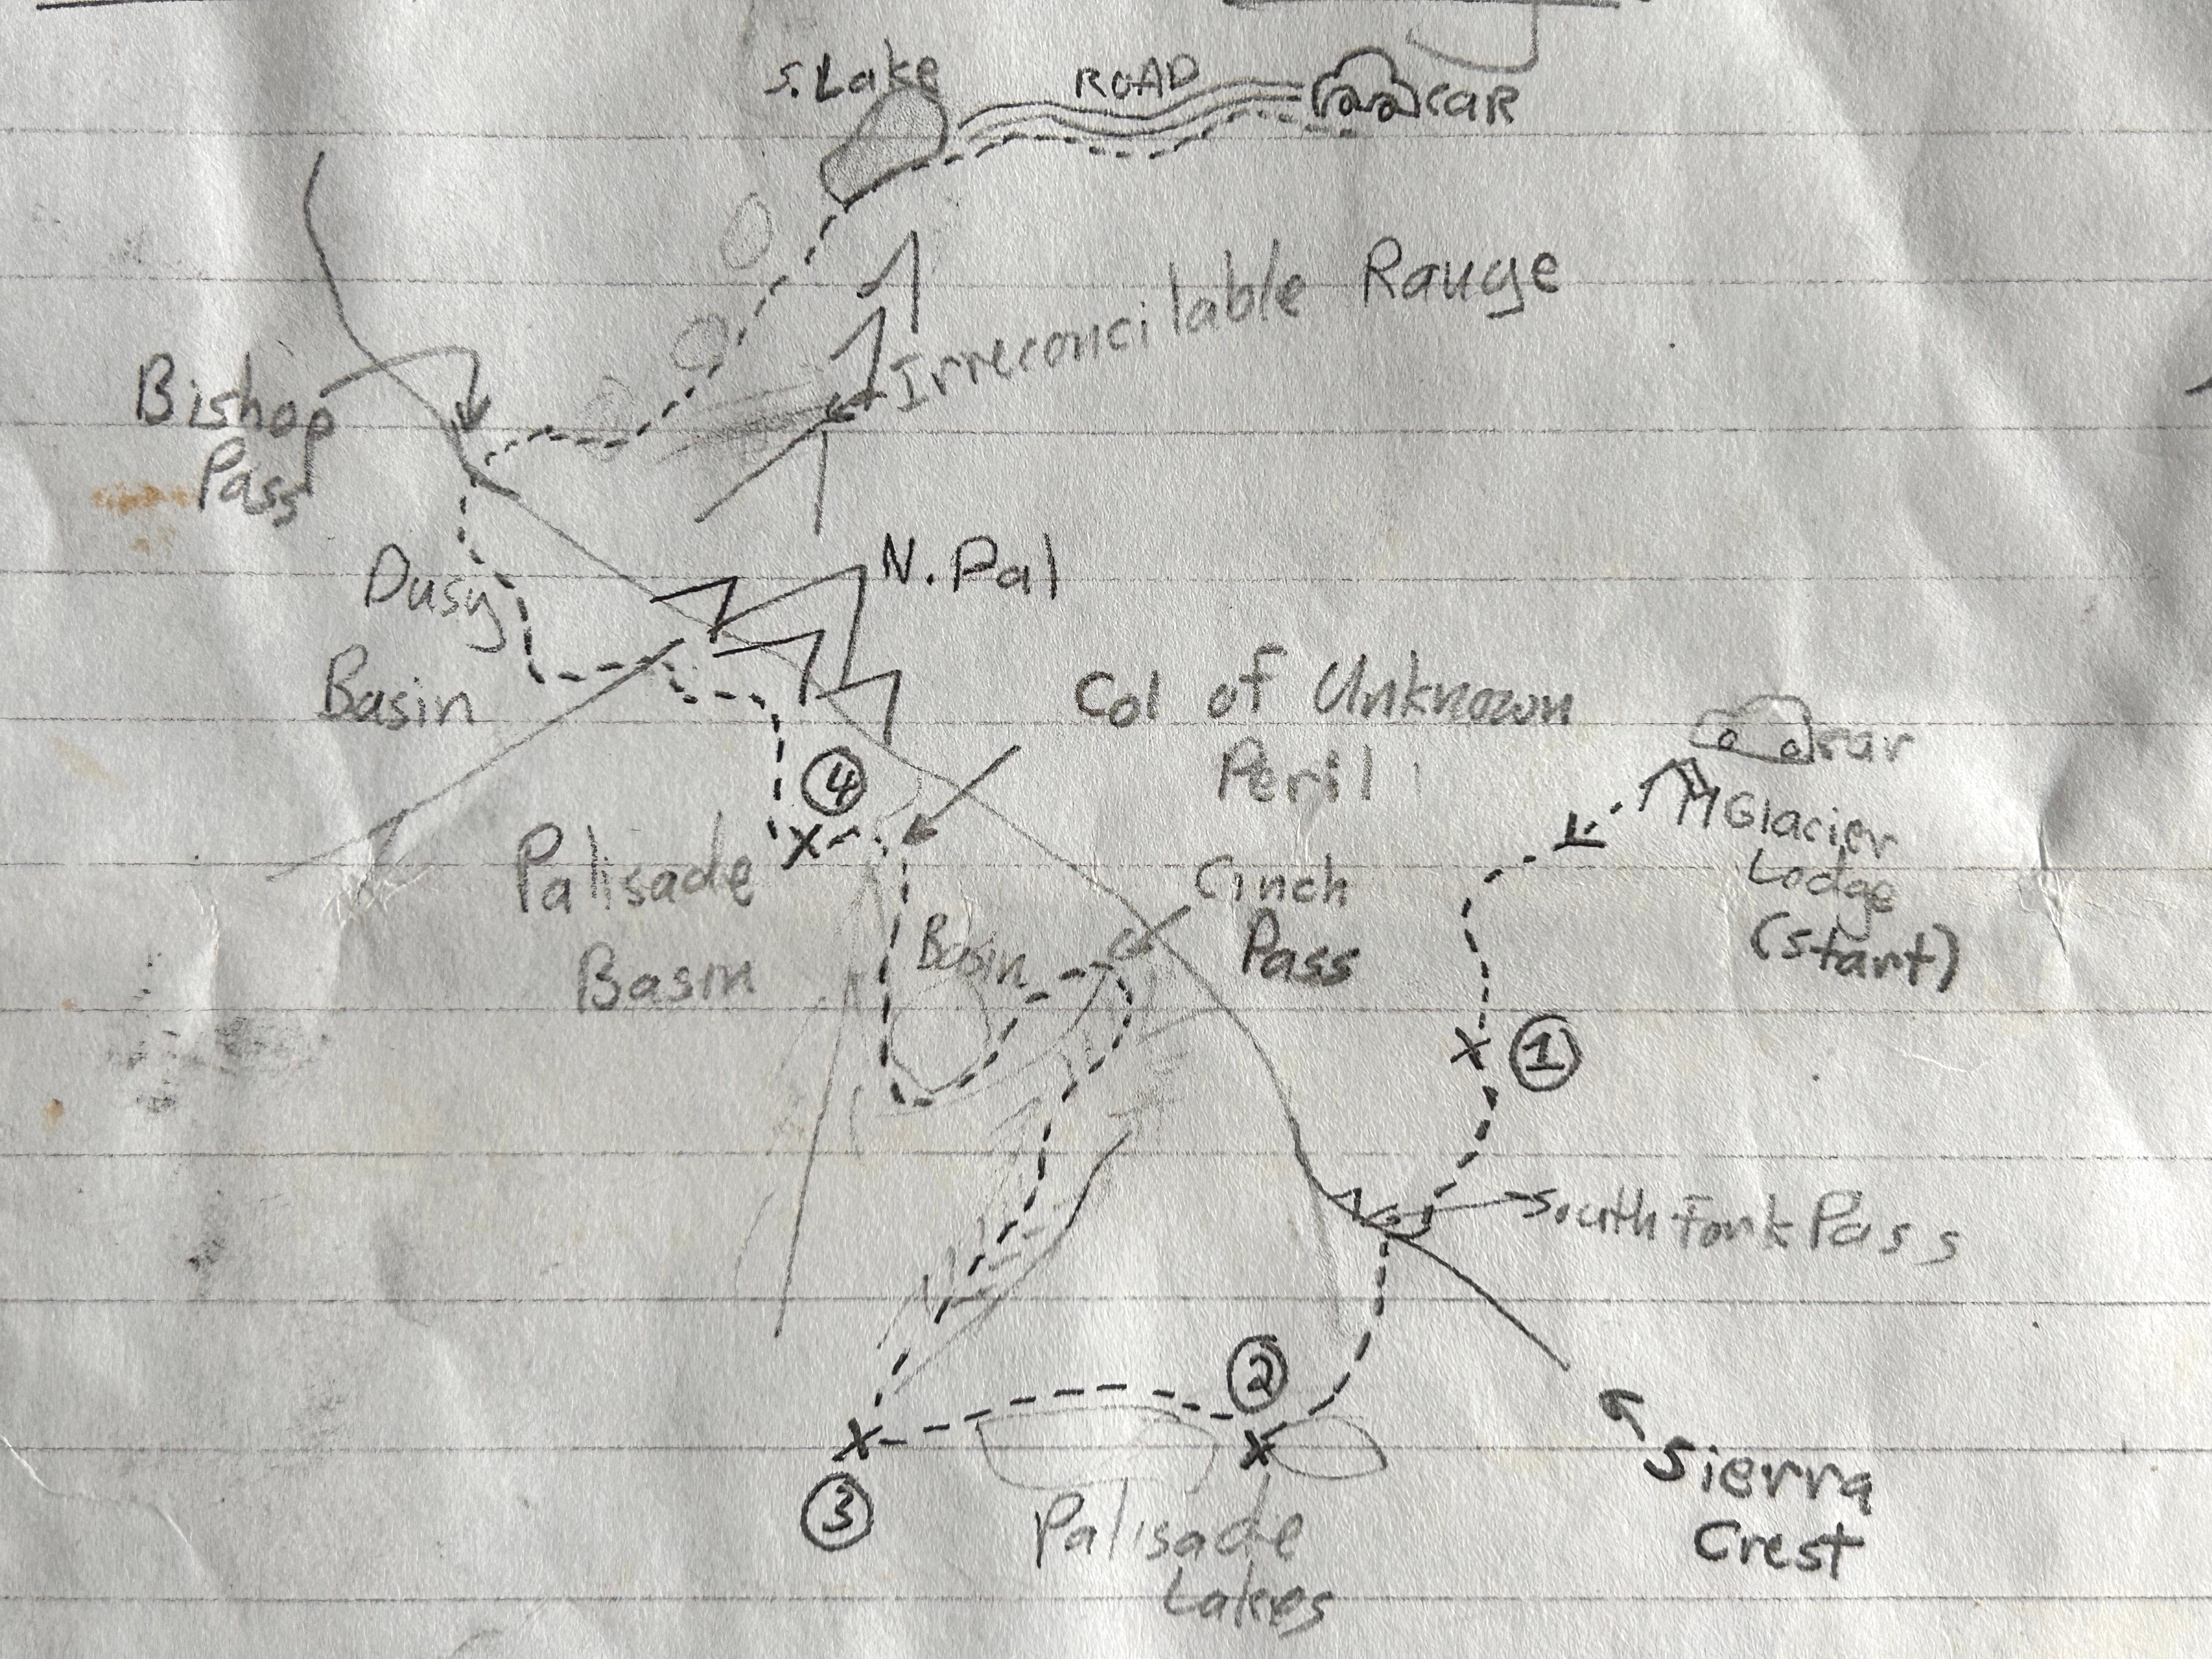 S. Lake
ROAD
CAR
Irreconcilable Range
Bishop
Pass
N. Pal
Dusy
Basin
Col of Unknown
Peril
car
Glacier
Lodge
(start)
4
Palisade
Basin
Cinch
Pass
Basin
1
South Fork Pass
2
3
Palisade
Lakes
Sierra
Crest